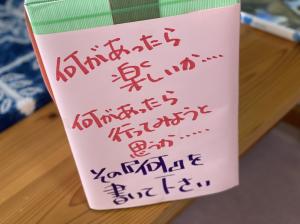 何があったら
楽しいか....
何があったら
行ってみようと
思うか.....
その『何』を
書いて下さい